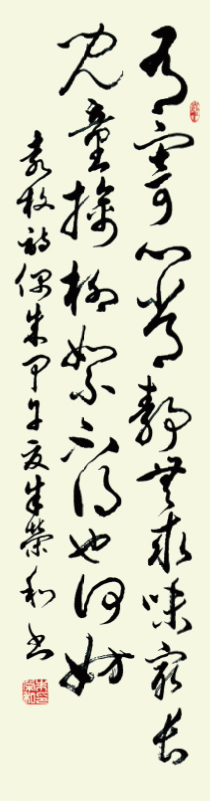 有寄心常靜無求味最長
兒童擒柳絮不得也何妨
袁枚詩偶成甲午夏朱榮和書